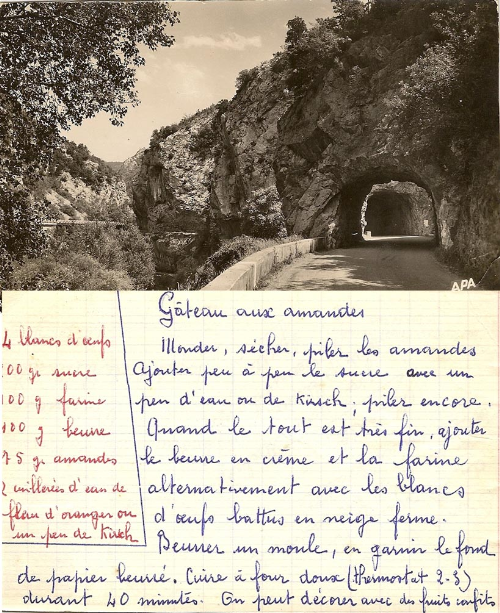 APA
Gâteau aux amandes
4 blancs d'œufs
00 gr sucre
100 g farine
100 g beurre
75 gr amandes
2 cuillerées d'eau de
fleur d'oranger ou
un peu de Kirsch
Monder, sécher, piler les amandes
Ajouter peu à peu le sucre avec un
peu d'eau ou de Kirsch ; piler encore.
Quand le tout est très fin, ajouter
le beurre en crême et la farine
alternativement avec les blancs
d'œufs battus en neige ferme.
Beurrer un moule, en garnir le fond
de papier beurré. Cuire à four doux (thermostat 2-3)
durant 40 minutes. On peut décorer avec des fruits confits